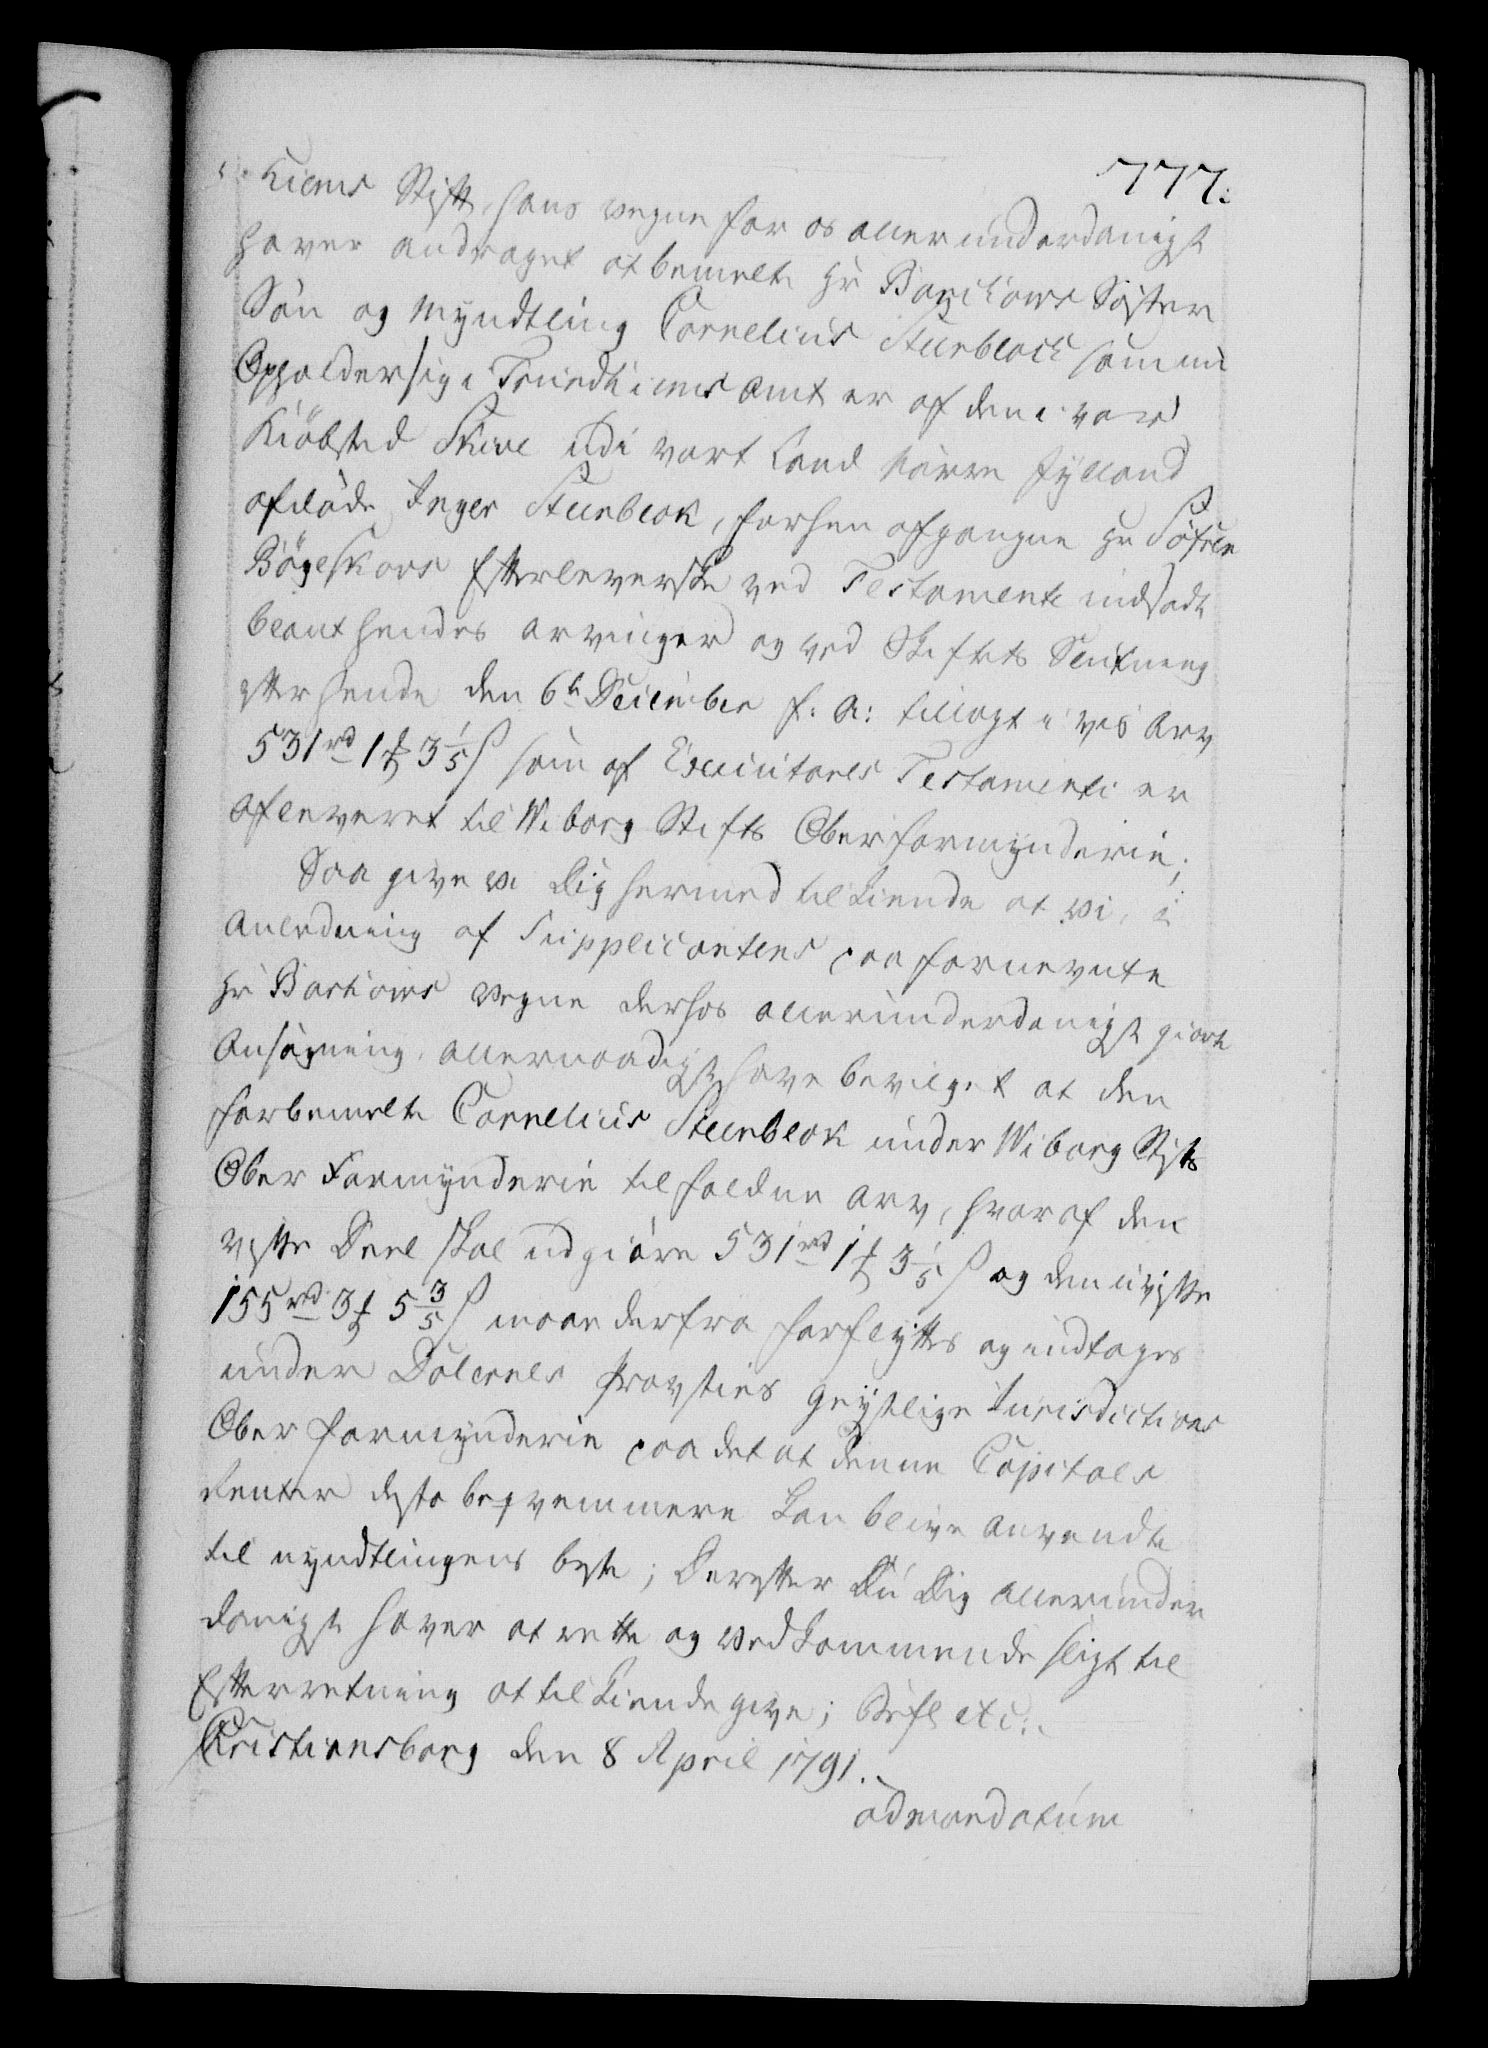 777.
hiems Stift, hans vegne for os allerunderdanigst
haver andraget at bemelte Hr Barchows Søster
Søn og Myndtling Cornelius Steenblock som nu
Opholder sig i Trundhiems Amt er af den i vor
Kiöbsted Skive udi vort Land Nørre Jylland
afdøde Inger Steenblok, forhen afgangne Hr
Bögeskovs Efterleverske ved Testamente indsadt
blant hendes Arvinger og ved Skiftets Slutning
efter hende den 6te December f: A: tillagt i vis Arv
531 rd 1 ₰ 3 1/5 ß som af Executores Testamenti er
afleveret til Wiborg Stifts Oberformynderie;
Saa give vi Dig hermed tilkiende at vi, i
Anledning af Supplicantens paa fornevnte
Hr Barchows vegne derhos allerunderdanigst giorte
Ansøgning, allernaadigst have bevilget at den
forbemelte Cornelius Steenblok under Wiborg Stifts
Ober Formynderie tilfaldne Arv, hvoraf den
visse Deel skal udgiøre 531 rd 1 ₰ 3 1/5 ß og den uvisse
155 rd 3 ₰ 5 3/5 ß maae derfra forflyttes og indtages
under Dalernes Provsties geistlige Jurisdictions
Ober formynderie paa det at denne Capitals
Renter desto beqvemmere kan blive anvendte
til Myndtlingens beste; Derefter Du Dig allerunder
danigst haver at rette og vedkommende sligt til
Efterretning at tilkiende give; Befl etc:
Christiansborg den 8 April 1791.
ad mandatum